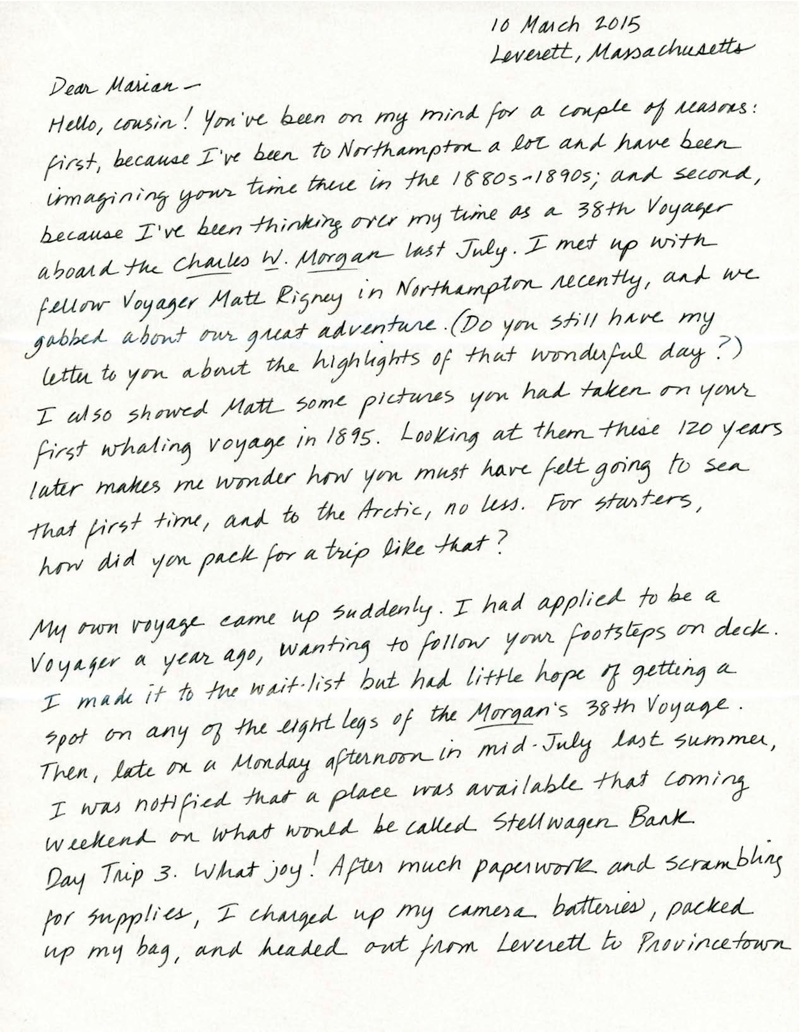 10 March 2015
Leverett, Massachusetts
Dear Marian —
Hello, cousin! You've been on my mind for a couple of reasons:
first, because I've been to Northampton a lot and have been
imagining your time there in the 1880s-1890s; and second,
because I've been thinking over my time as a 38th Voyager
aboard the Charles W. Morgan last July. I met up with
fellow Voyager Matt Rigney in Northampton recently, and we
gabbed about our great adventure. (Do you still have my
letter to you about the highlights of that wonderful day?)
I also showed Matt some pictures you had taken on your
first whaling voyage in 1895. Looking at them these 120 years
later makes me wonder how you must have felt going to sea
that first time, and to the Arctic, no less. For starters,
how did you pack for a trip like that?
My own voyage came up suddenly. I had applied to be a
Voyager a year ago, wanting to follow your footsteps on deck.
I made it to the wait-list but had little hope of getting a
spot on any of the eight legs of the Morgan's 38th Voyage.
Then, late on a Monday afternoon in mid-July last summer,
I was notified that a place was available that coming
weekend on what would be called Stellwagen Bank
Day Trip 3. What joy! After much paperwork and scrambling
for supplies, I charged up my camera batteries, packed
up my bag, and headed out from Leverett to Provincetown